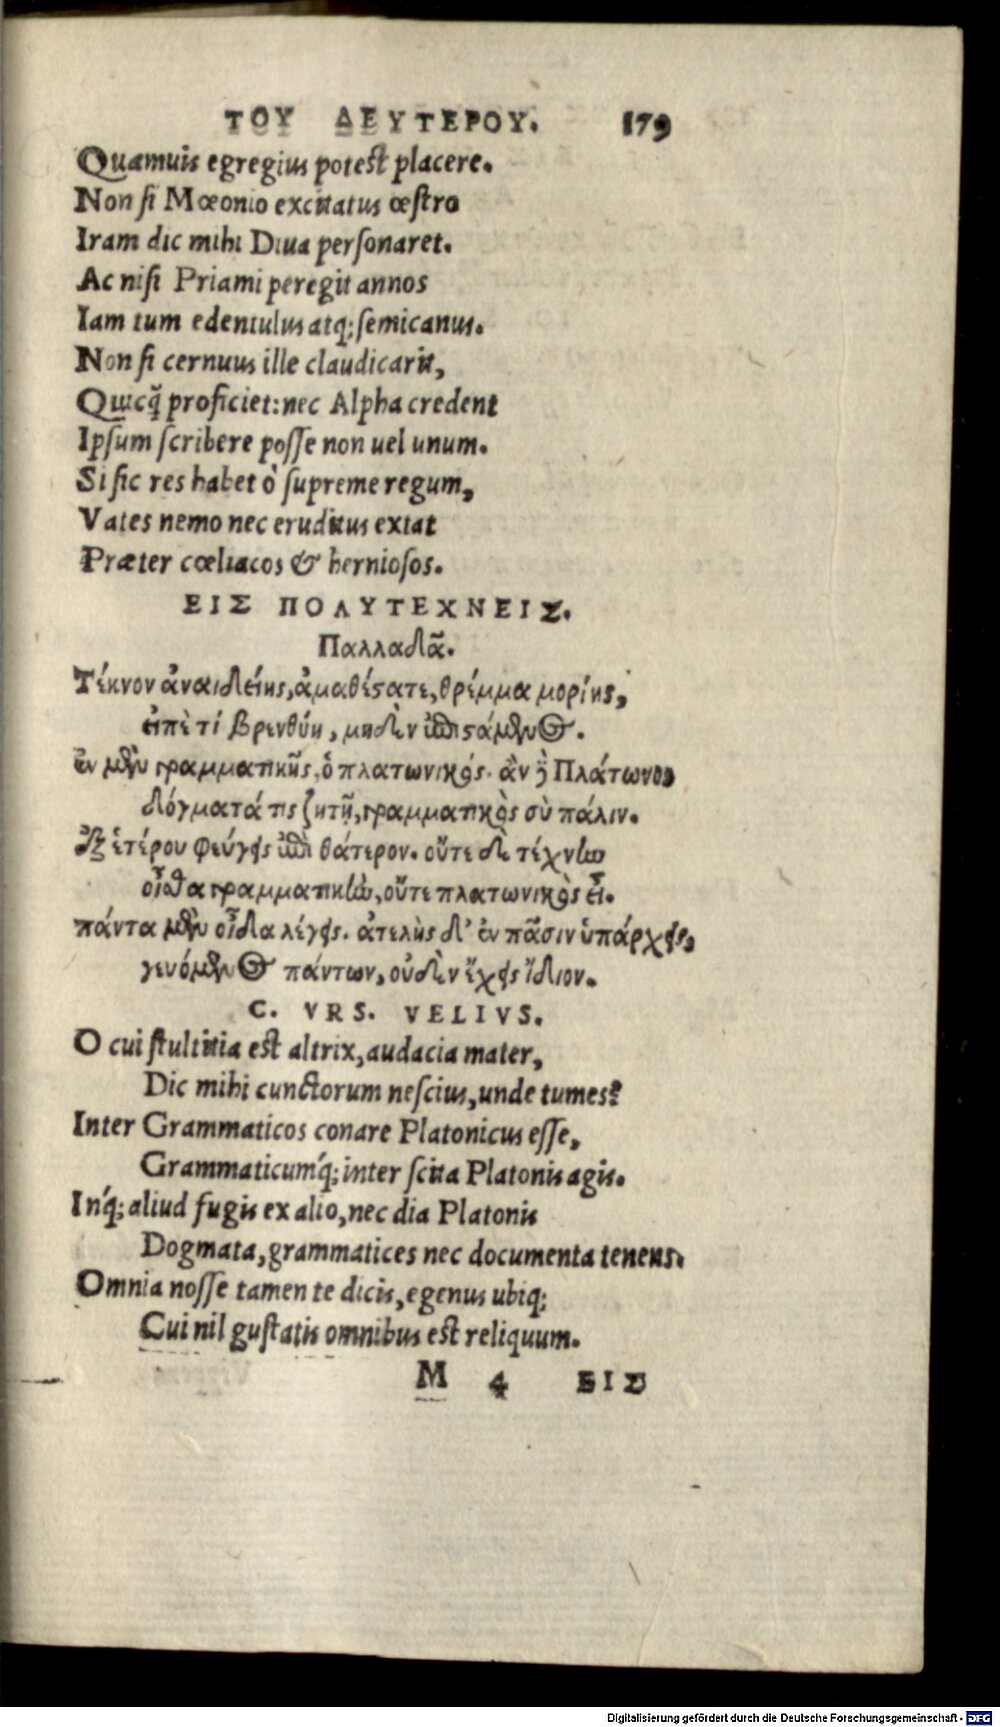 ΤΟΥ ΔΕΥΤΕΡΟΥ. 179
Quamuis egregius potest placere.
Non si Mœonio excitatus œstro
Iram dic mihi Diua personaret.
Ac nisi Priami peregit annos
Iam tum edentulus atq; semicanus.
Non si cernuus ille claudicarit,
Quicq̃ proficiet: nec Alpha credent
Ipsum scribere posse non uel unum.
Si sic res habet ò supreme regum,
Vates nemo nec eruditus extat
Præter cœliacos & herniosos.
ΕΙΣ ΠΟΛΥΤΕΧΝΕΙΣ.
Παλλαδᾶ.
Τέκνον ἀναιδείης, ἀμαθέστατε, θρέμμα μορίης,
εἰπὲ τί βρενθύῃ, μηδὲν ἐπιστάμενος.
ἐν μὲν γραμματικῆς, ὁ πλατωνικός. ἂν ἢ Πλάτωνος
δόγματά τις ζητῇ, γραμματικὸς σὺ πάλιν.
ἐξ ἑτέρου φεύγεις ἐπὶ θάτερον. οὔτε δὲ τέχνην
οἶσθα γραμματικὴν, οὔτε πλατωνικὸς εἶ.
πάντα μὲν οἶδα λέγεις. ἀτελὴς δ’ ἐν πᾶσιν ὑπάρχεις,
γευόμενος πάντων, οὐδὲν ἔχεις ἴδιον.
C. VRS. VELIVS.
O cui stultitia est altrix, audacia mater,
Dic mihi cunctorum nescius, unde tumes?
Inter Grammaticos conare Platonicus esse,
Grammaticumq́; inter scita Platonis agis.
Inq́; aliud fugis ex alio, nec dia Platonis
Dogmata, grammatices nec documenta tenens.
Omnia nosse tamen te dicis, egenus ubiq;
Cui nil gustatis omnibus est reliquum.
M 4 ΕΙΣ
Digitalisierung gefördert durch die Deutsche Forschungsgemeinschaft - DFG